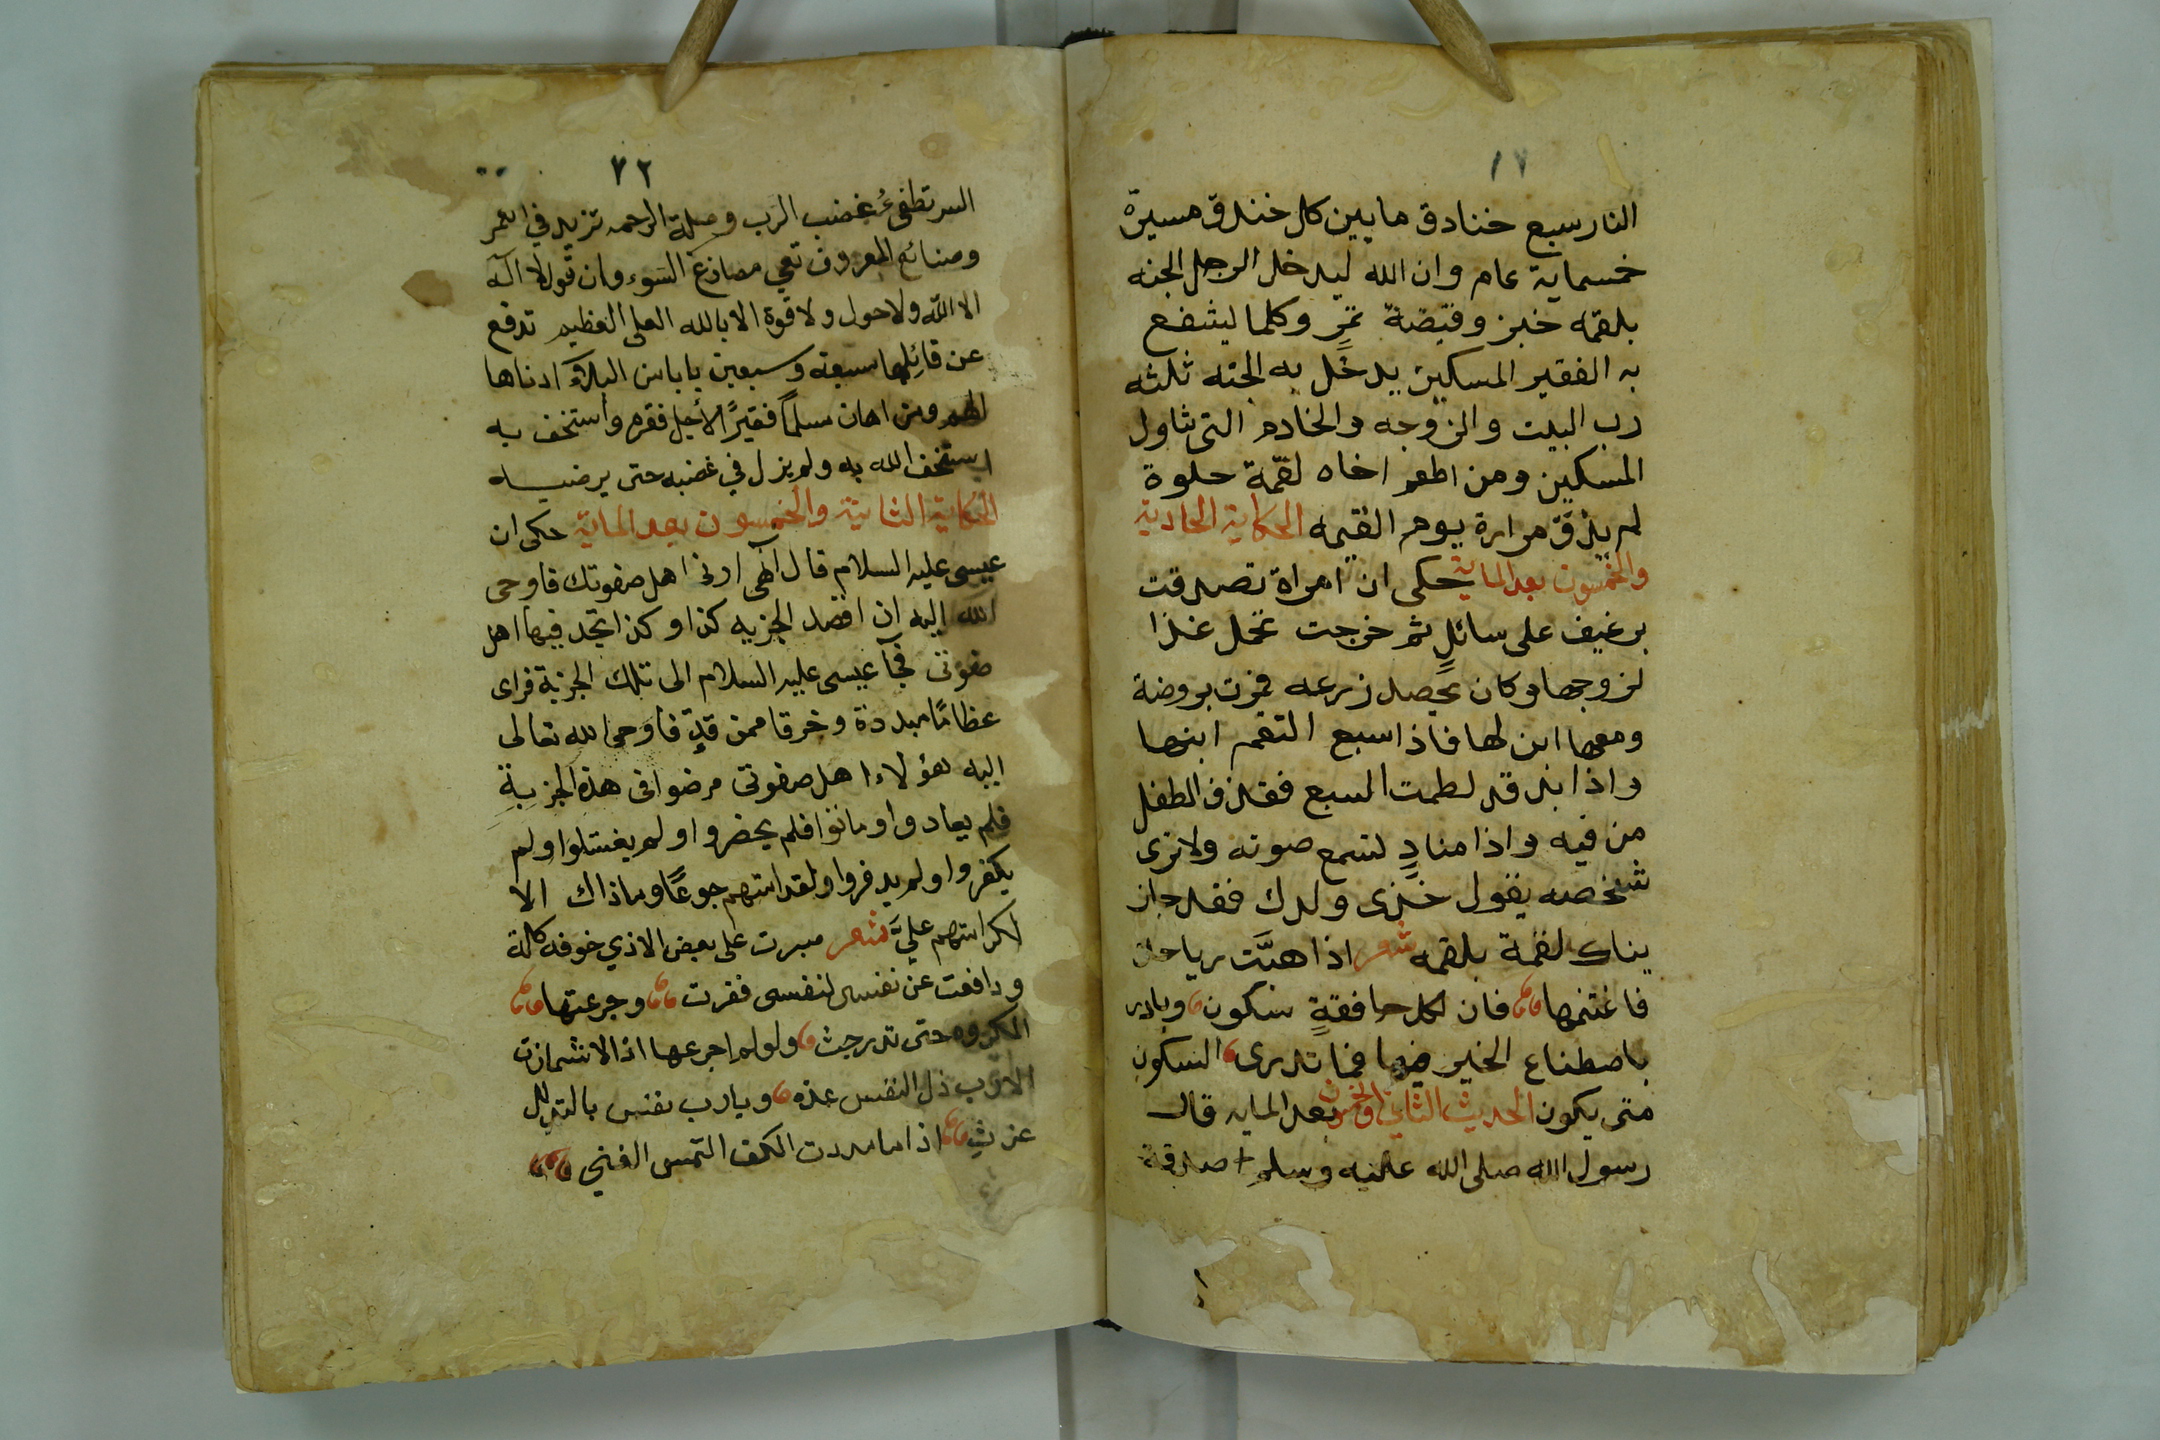 ١٧
النار سبع خنادق ما بين كل خندق مسيرة
خمسماية عام وان الله ليدخل الرجل الجنه
بلقمه خبز وقبضة تمر وكلما ليشفع
به الفقير المسكين يدخل به الجنه ثلثه
رب البيت والزوجه والخادم التى تناول
المسكين ومن اطعم اخاه لقمة حلوة
لم يذق مرارة يوم القيمه الحكاية الحادية
والخمسون بعد الماية حكى ان امراة تصدقت
برغيف على سائل ثم خرجت تحمل غذا
لزوجها وكان يحصد زرعه فمرت بروضة
ومعها ابن لها فاذا سبع التقم ابنها
واذا بيد قد لطمت السبع فقذف الطفل
من فيه واذا مناد لتسمع صوته ولا ترى
شخصه يقول خذى ولدك فقد جاز
يناك لقمة بلقمه شعر اذا هبت رياحك
فاغتنمها فان لكل خافقة سكون وبادر
باصطناع الخير فيها فما تدرى السكون
متى يكون الحديث الثاني والخمسون بعد المايه قال
رسول الله صلى الله عليه وسلم صدقة
٧٢
السر تطفىء غضب الرب وصلة الرحمه تزيد في العمر
وصنائع المعروف تقي مصارع السوء وان قول لا اله
الا الله ولا حول ولا قوة الا بالله العلى العظيم تدفع
عن قائلها سبعة وسبعين بابا من البلاء ادناها
الهم ومن اهان مسلما فقيرا لأجل فقره واستخف به
استخف الله به ولم يزل في غضبه حتى يرضيه
الحكاية الثانية والخمسون بعد الماية حكى ان
عيسى عليه السلام قال الهى ارنى اهل صفوتك فاوحى
الله اليه ان اقصد الجزبه كذا وكذا تجد فيها اهل
صفوتى فجآ عيسى عليه السلام الى تلك الجزبة فراى
عظاما مبددة وخرقا ممزقة فاوحى الله تعالى
اليه هؤلاء اهل صفوتى مرضوا فى هذه الجزبة
فلم يعادوا وماتوا فلم يحضروا ولم يغسلوا ولم
يكفروا ولم يدفروا ولقد امتهم جوعا وما ذاك الا
لكرامتهم علي شعر صبرت على بعض الاذي خوفه كله
ودافعت عن نفسى لنفسى فقرت وجرعتها
المكروه حتى تدرجت ولو لم اجرعها اذا لاشمازت
الا رب ذل النفس عزه ويا رب نفس بالتذلل
عزت اذا ما مددت الكف التمس الغني